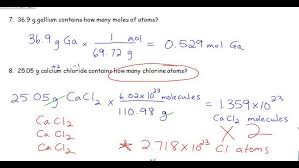 7. 36.9 g gallium contains how many moles of atoms?
36.9 g Ga × 1 mol / 69.72 g = 0.529 mol
8. 25.05 g calcium chloride contains how many chlorine atoms?
+2 -1
25.05 g CaCl2 × 6.02×10^23 molecules / 110.98 g = 1.359×10^23 molecules
CaCl2
CaCl2
CaCl2
× 2
* 2.718×10^23 Cl atoms